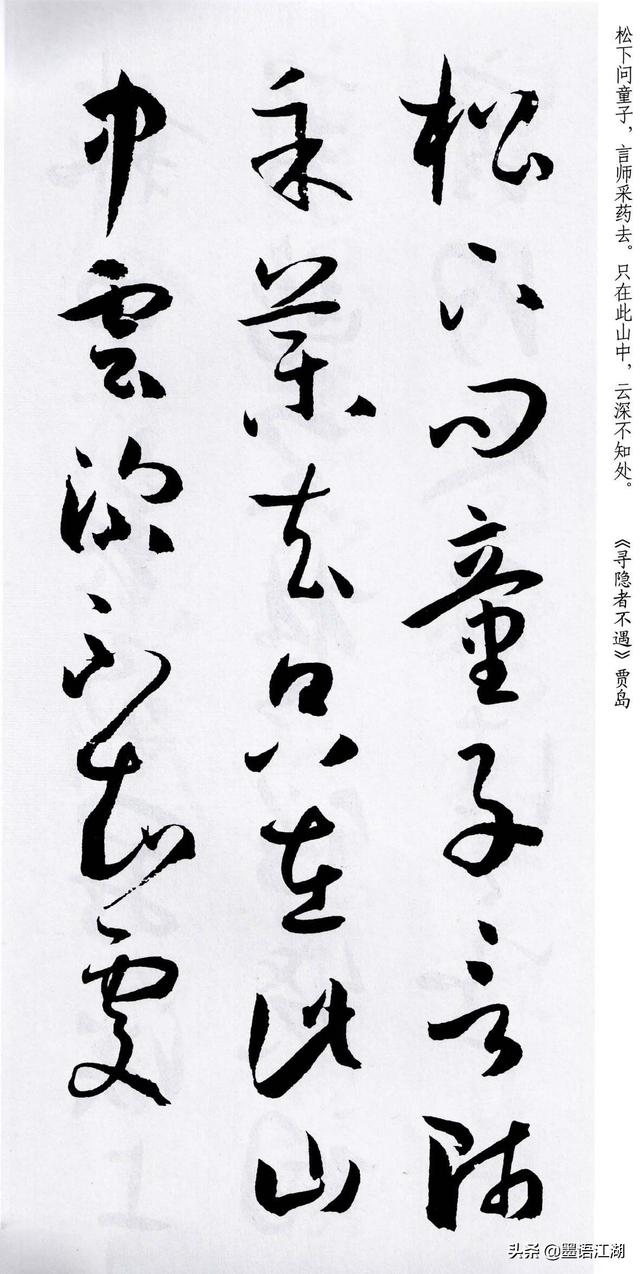 松下问童子，言师采药去。只在此山中，云深不知处。 《寻隐者不遇》贾岛
松下问童子言師
采藥去只在此山
中雲深不知處
头条 @墨语江湖